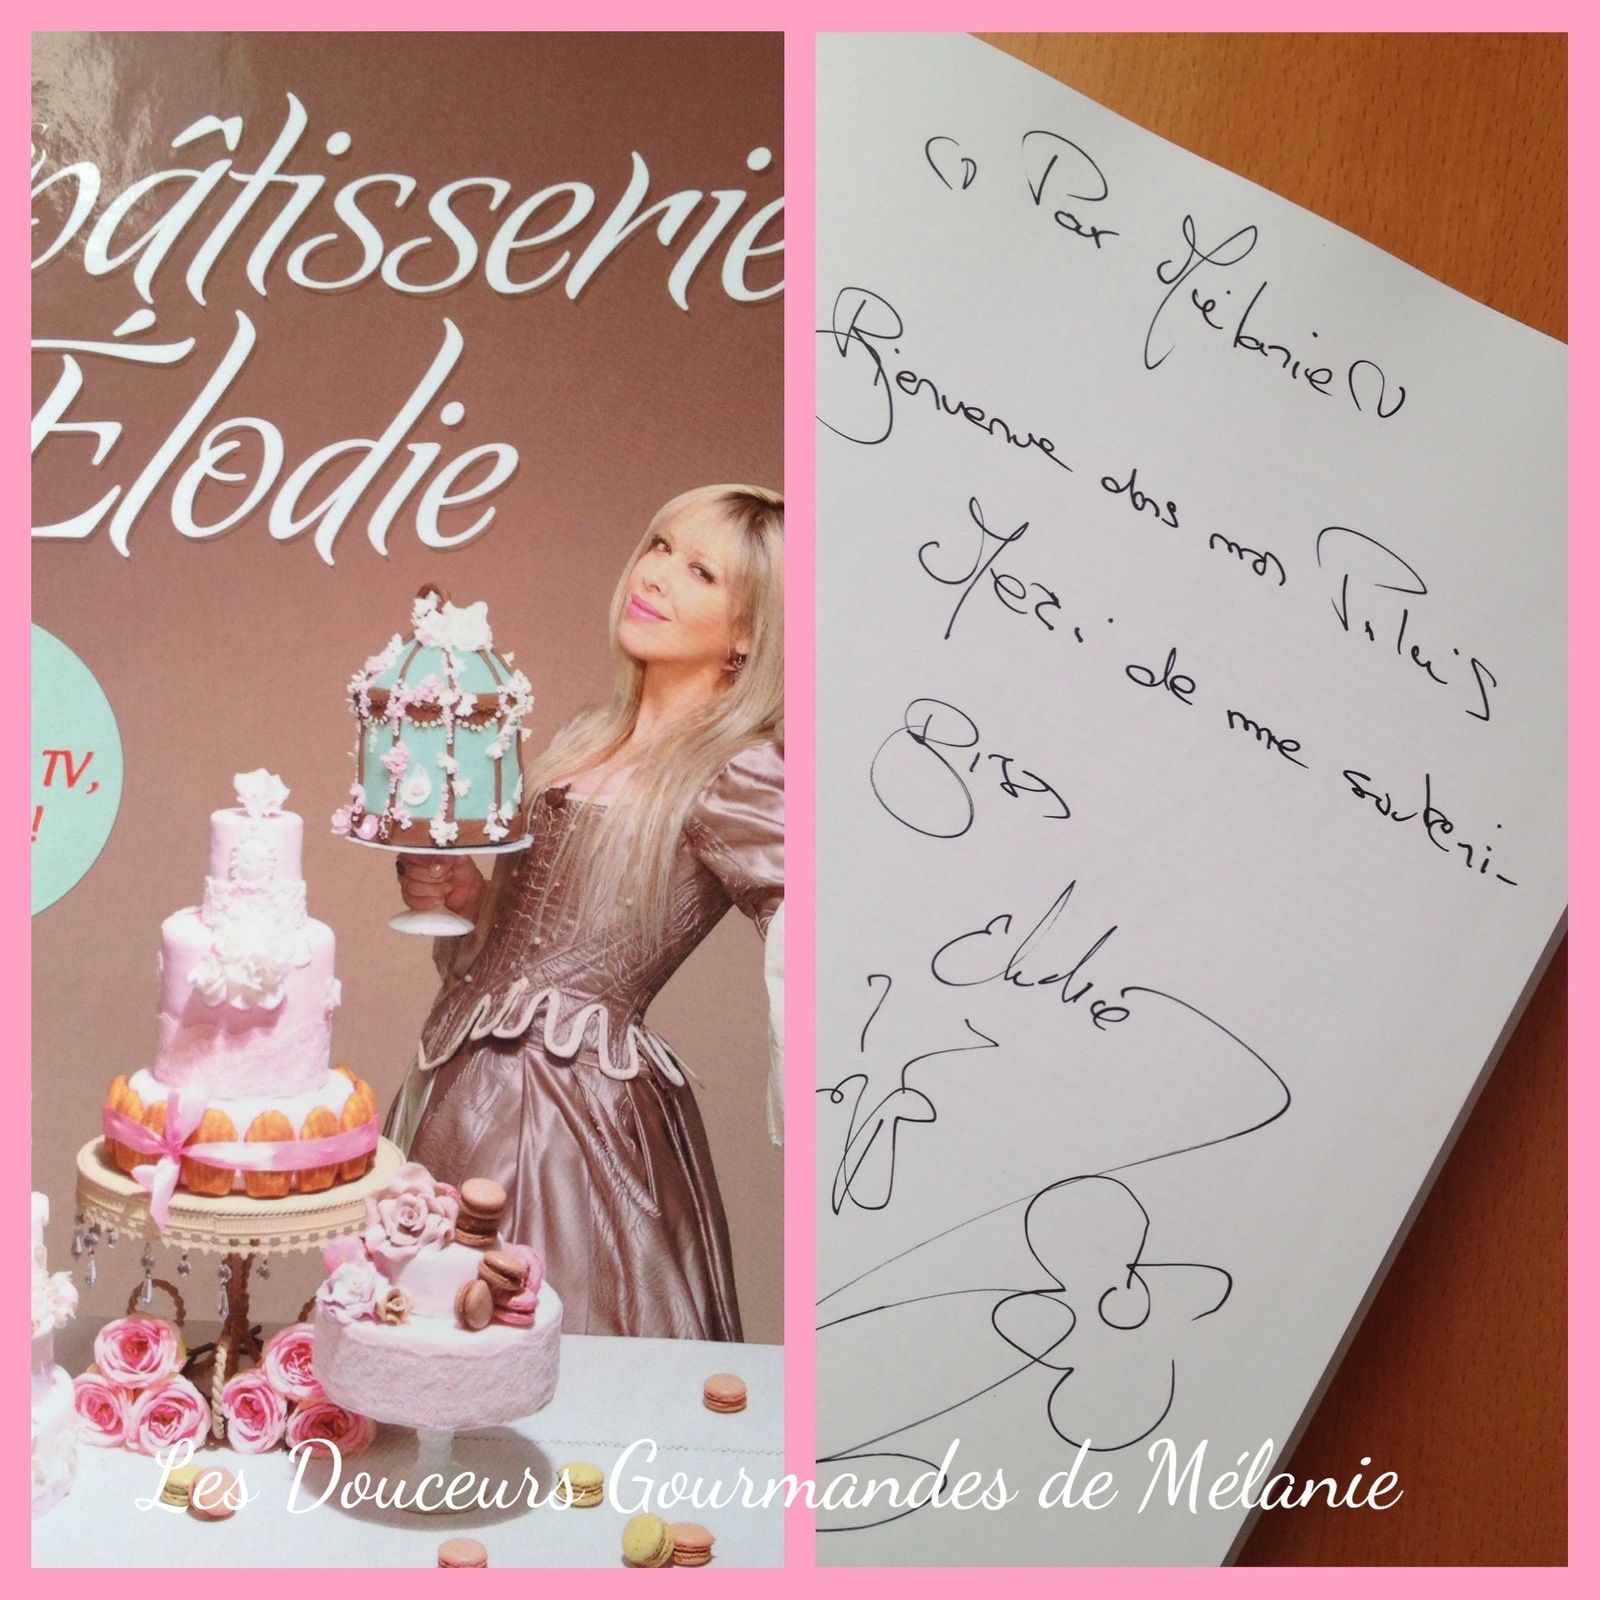 pâtisserie
Élodie
TV,
!
Pour Mélanie
Bienvenue dans mon Palais
Merci de me soutenir
Bises
Elodie
Les Douceurs Gourmandes de Mélanie